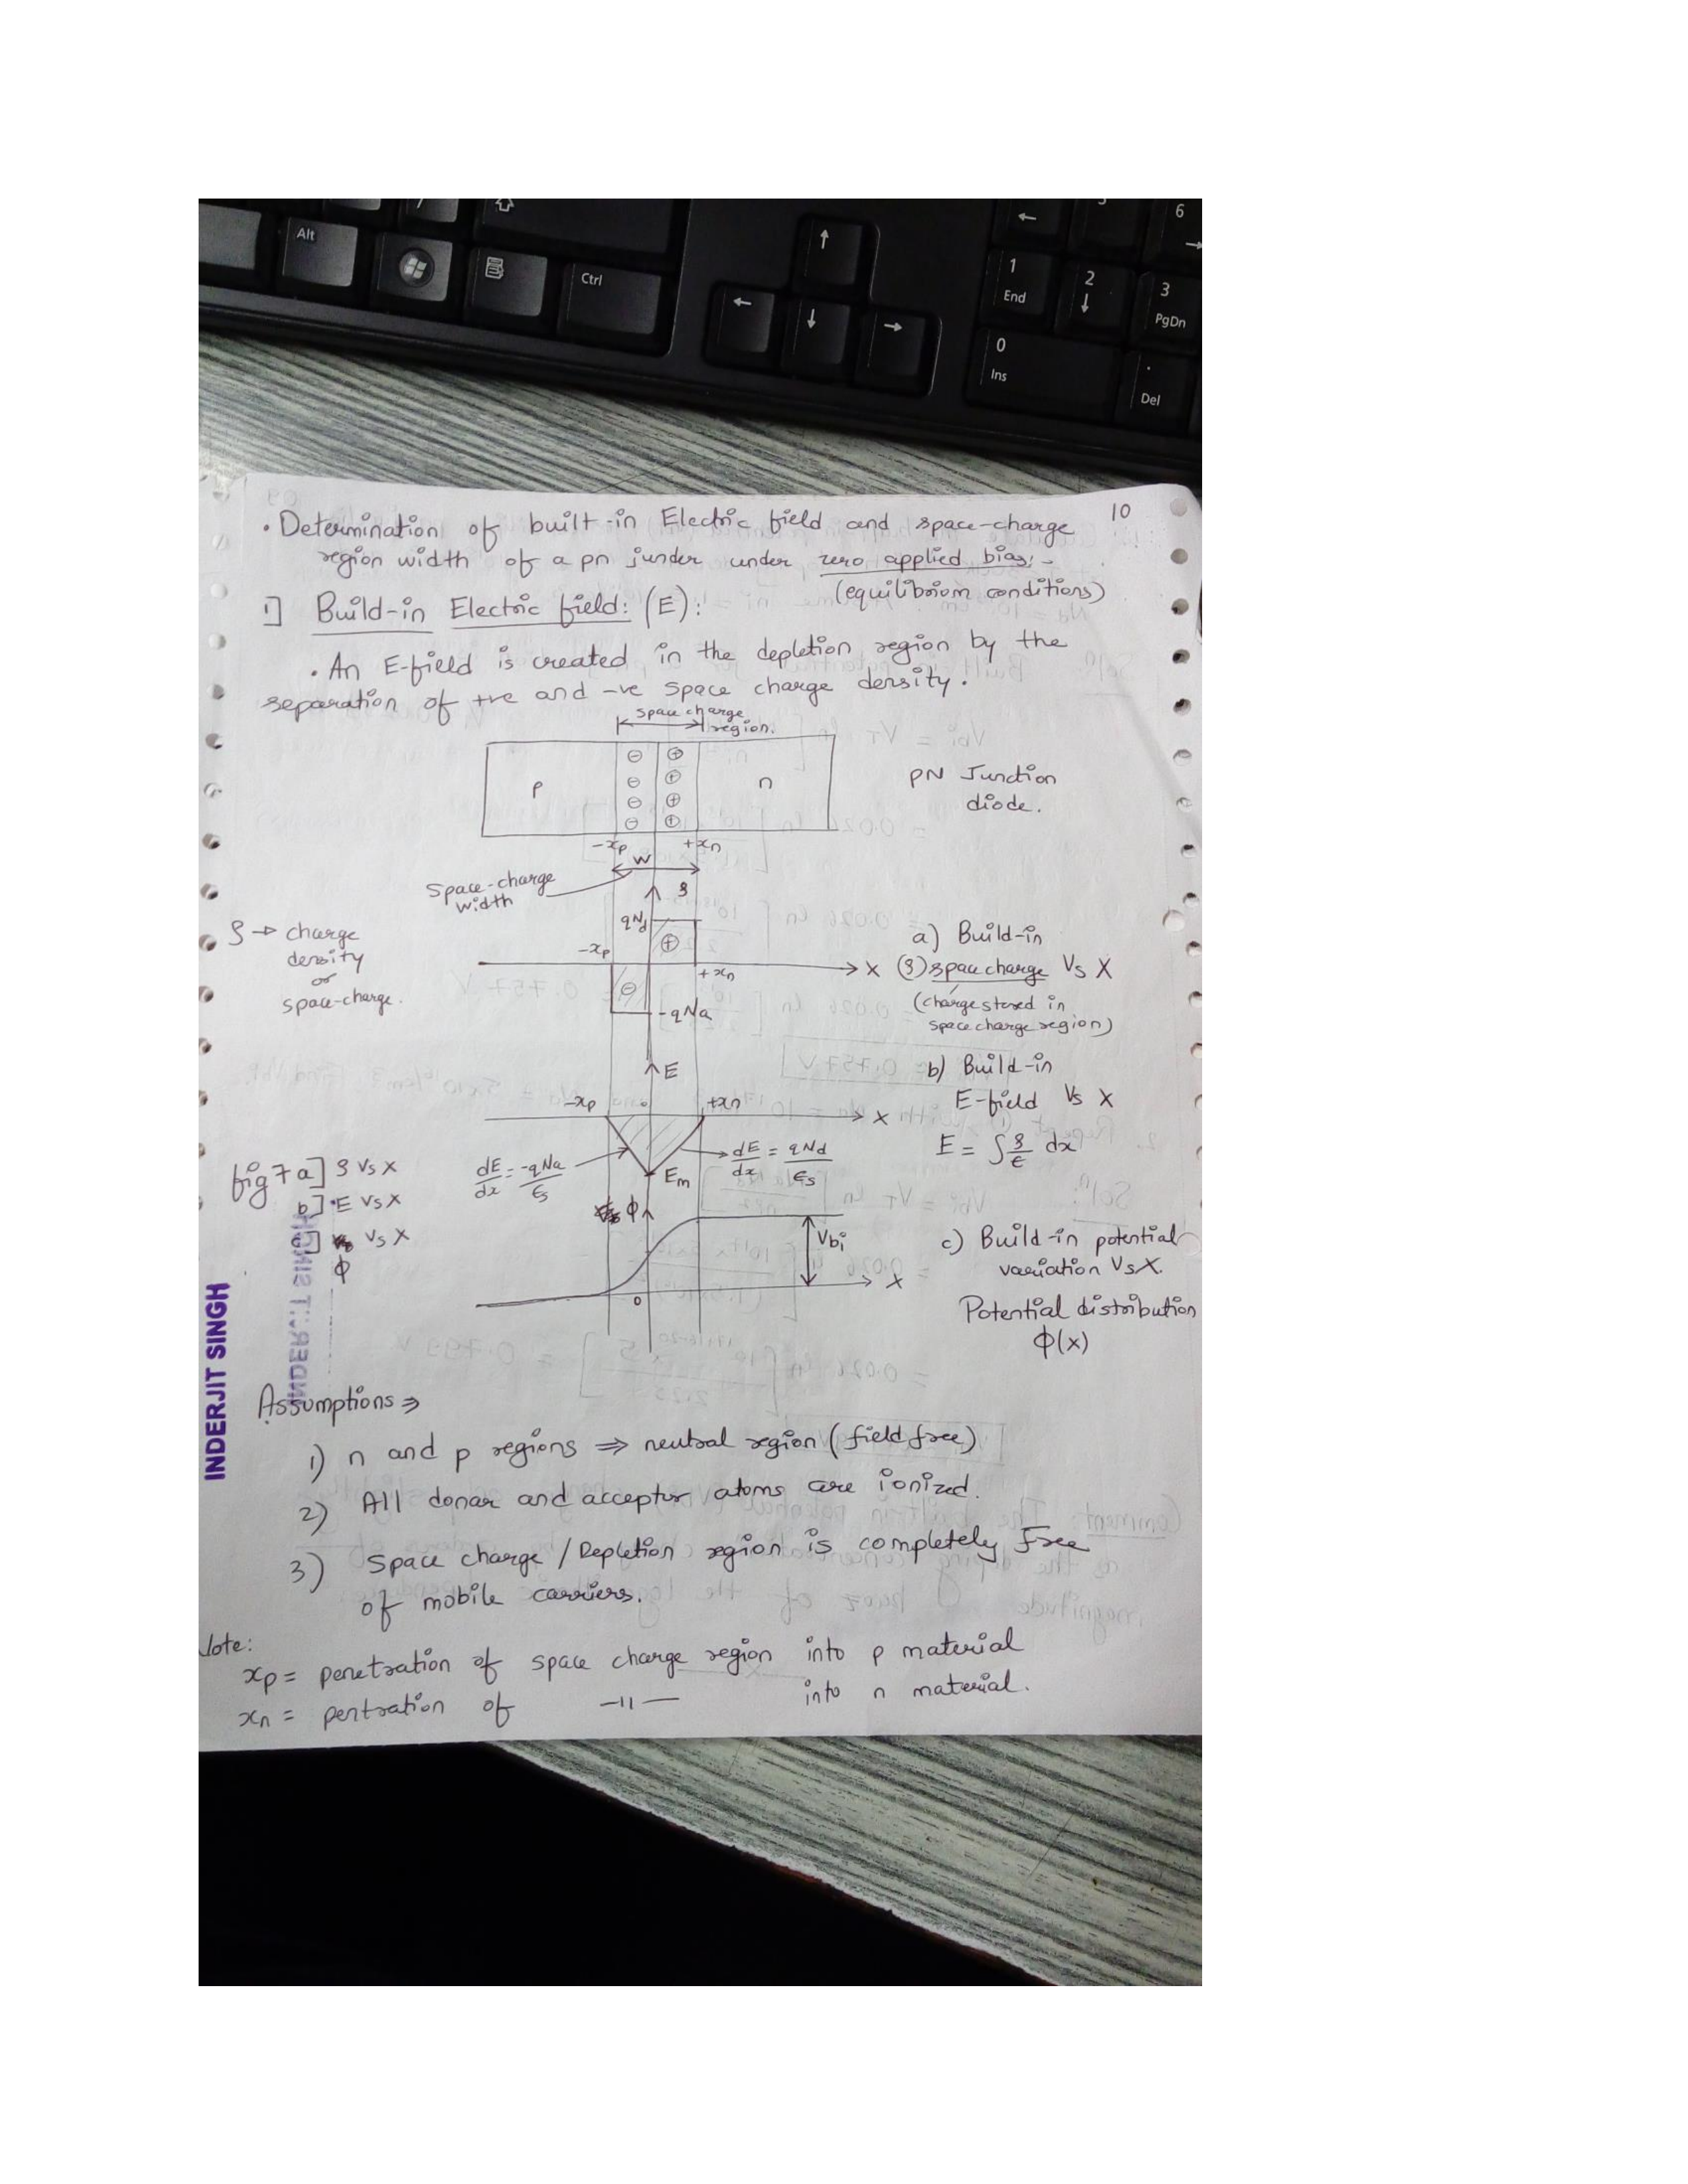 Alt
Ctrl
1
End
2
3
PgDn
6
0
Ins
.
Del
10
• Determination of built-in Electric field and space-charge
region width of a pn junder under zero applied bias:-
(equilibrium conditions)
1] Build-in Electric field: (E):
• An E-field is created in the depletion region by the
separation of +ve and -ve space charge density.
space charge
region.
p
n
PN Junction
diode.
-xp
+xn
W
Space-charge
width
ρ
qNd
ρ → charge
density
or
space-charge.
-xp
+xn
X
-qNa
a) Build-in
(ρ) space charge Vs X
(charge stored in
space charge region)
E
b) Build-in
E-field Vs X
E = ∫ρ/ε dx
-xp
0
+xn
X
dE/dx = -qNa/εs
dE/dx = qNd/εs
Em
fig 7 a] ρ Vs X
b] E Vs X
c] Vs X
φ
φ
Vbi
X
0
c) Build-in potential
variation Vs X.
Potential distribution
φ(x)
INDERJIT SINGH
INDERJIT SINGH
Assumptions ⇒
1) n and p regions ⇒ neutral region (field free)
2) All donar and acceptor atoms are ionized.
3) Space charge / Depletion region is completely Free
of mobile carriers.
Note:
xp = penetration of space charge region into p material
xn = pentration of —11— into n material.